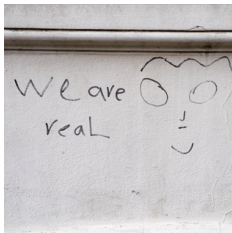 We are
reaL